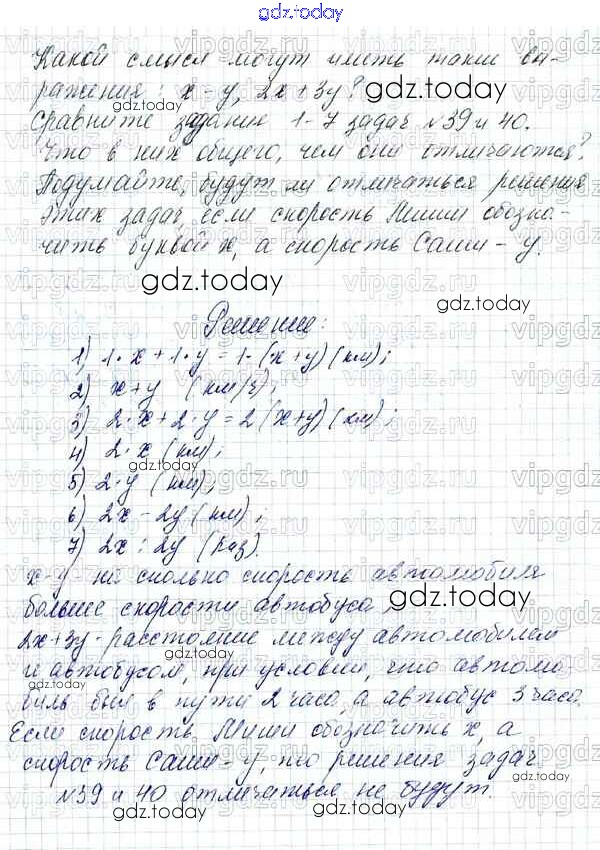 gdz.today
Какой смысл могут иметь такие вы-
ражения: x-y, 2x+3y?
Сравните задание 1-7 задач №39 и 40.
Что в них общего, чем они отличаются?
Подумайте, будут ли отличаться решения
этих задач, если скорость Миши обозна-
чить буквой x, а скорость Саши - y.
Решение:
1) 1·x+1·y=1·(x+y)(км);
2) x+y (км/ч);
3) 2·x+2·y=2(x+y)(км);
4) 2·x (км);
5) 2·y (км);
6) 2x-2y (км);
7) 2x:2y (раз).
x-y на сколько скорость автомобиля
больше скорости автобуса
2x+3y-расстояние между автомобилем
и автобусом, при условии, что автомо-
биль был в пути 2 часа, а автобус 3 часа.
Если скорость Миши обозначить x, а
скорость Саши-y, то решения задач
№39 и 40 отличаться не будут.